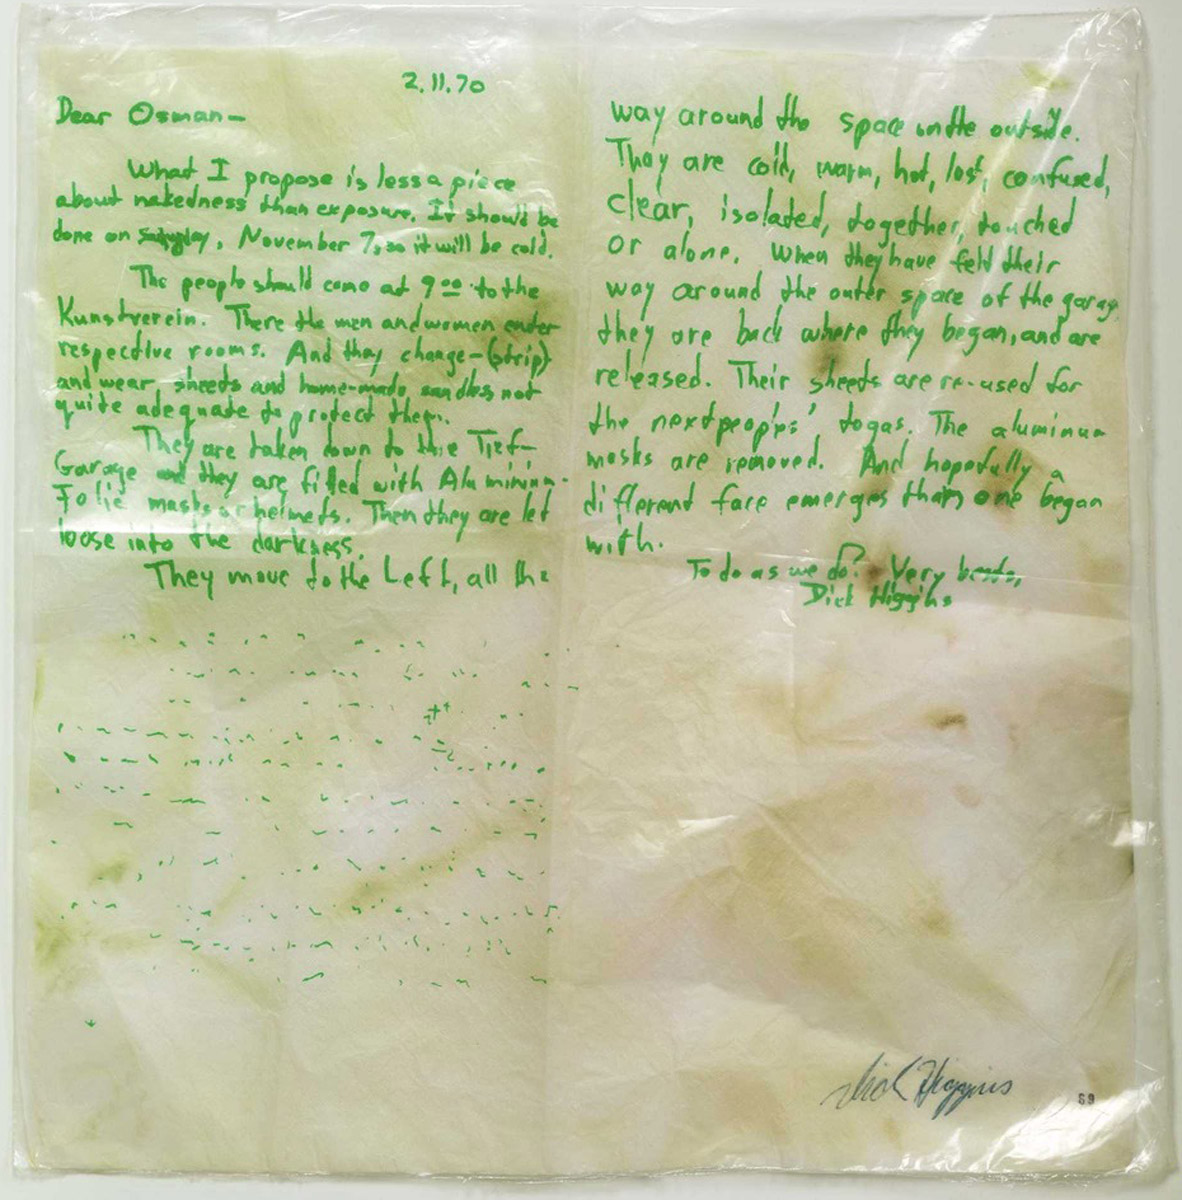 2.11.70
Dear Osman—
What I propose is less a piece
about nakedness than exposure. It should be
done on Saturday, November 7, so it will be cold.
The people should come at 9 00 to the
Kunstverein. There the men and women enter
respective rooms. And they change—(strip)
and wear sheets and home-made sandles not
quite adequate to protect them.
They are taken down to the Tief-
Garage and they are fitted with Aluminium-
Folie masks or helmets. Then they are let
loose into the darkness.
They move to the Left, all the
way around the space on the outside.
They are cold, warm, hot, lost, confused,
clear, isolated, together, touched
or alone. When they have felt their
way around the outer space of the garage
they are back where they began, and are
released. Their sheets are re-used for
the next people's togas. The aluminum
masks are removed. And hopefully a
different face emerges than one began
with.
To do as we do? Very bests,
Dick Higgins
Dick Higgins
69